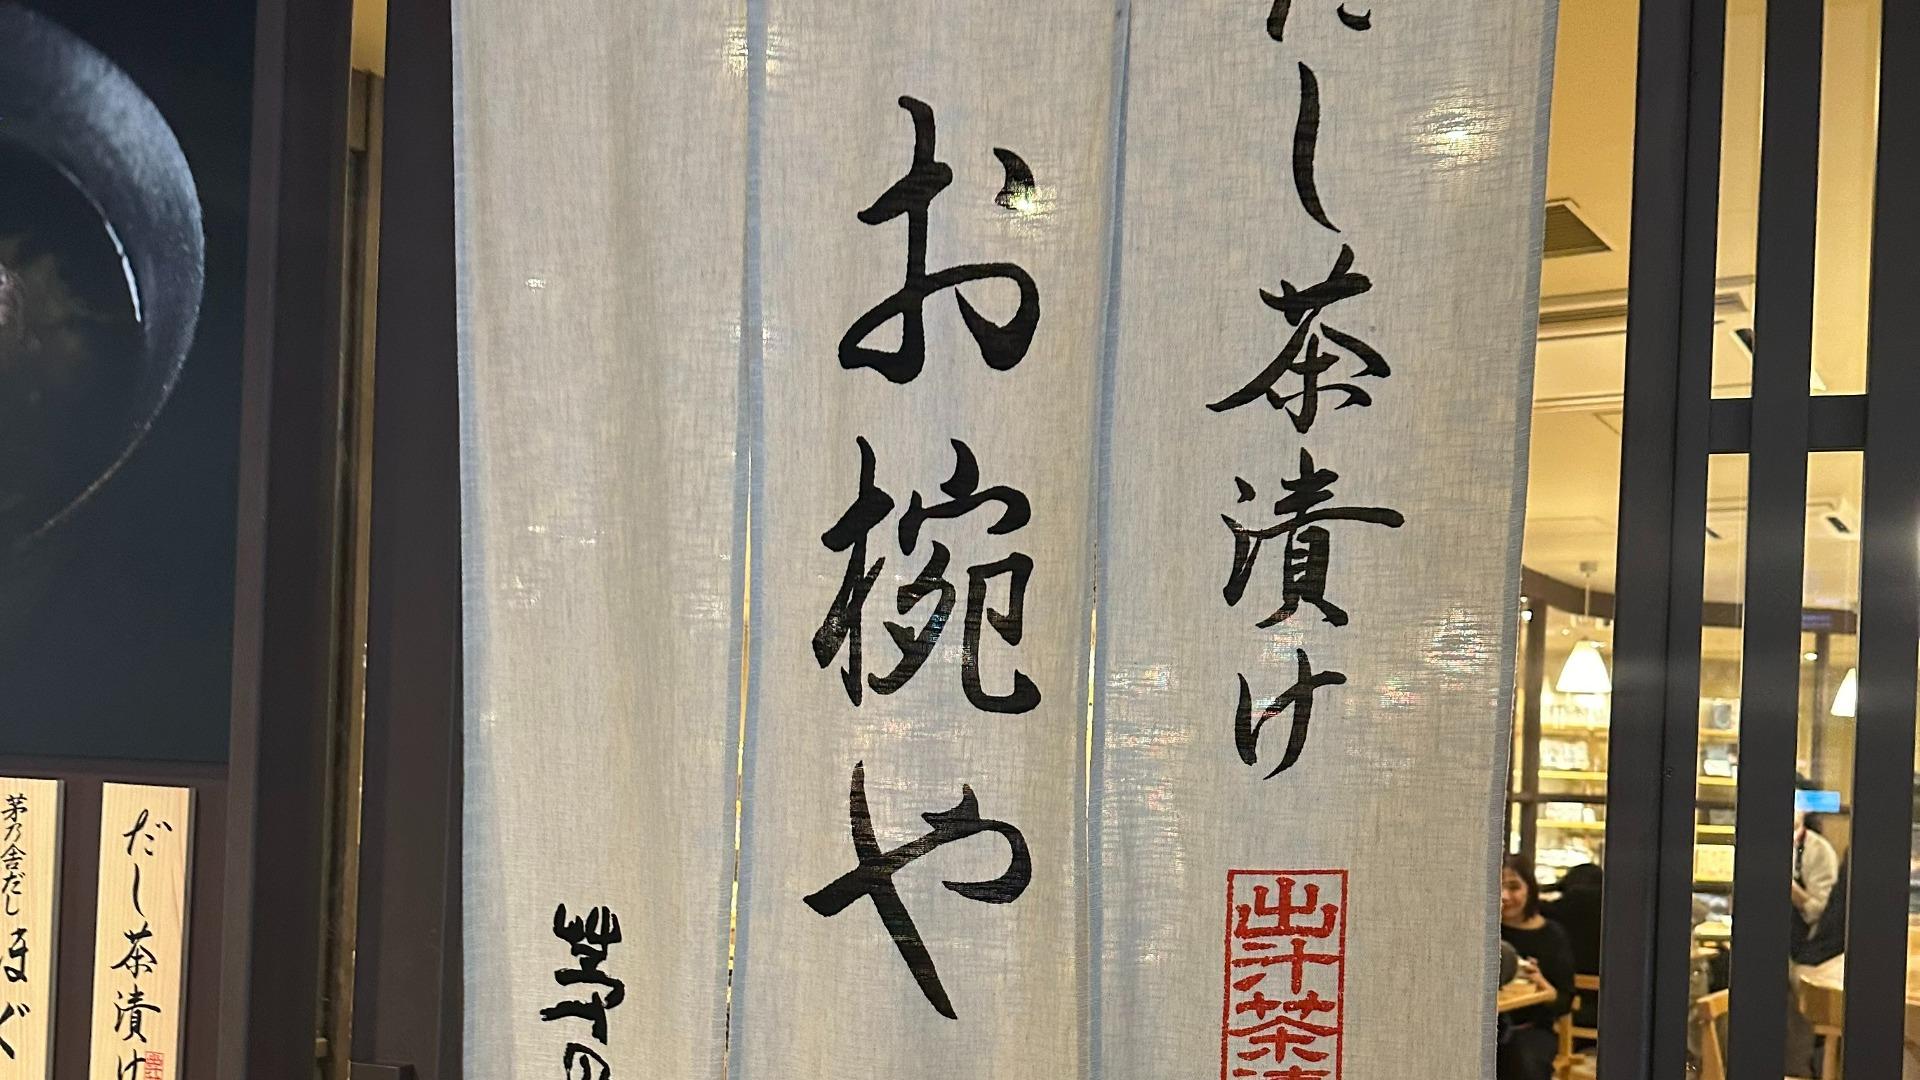 だし茶漬け
出汁茶漬
お椀や
茅乃
だし茶漬け
茅乃舎だし まぐ